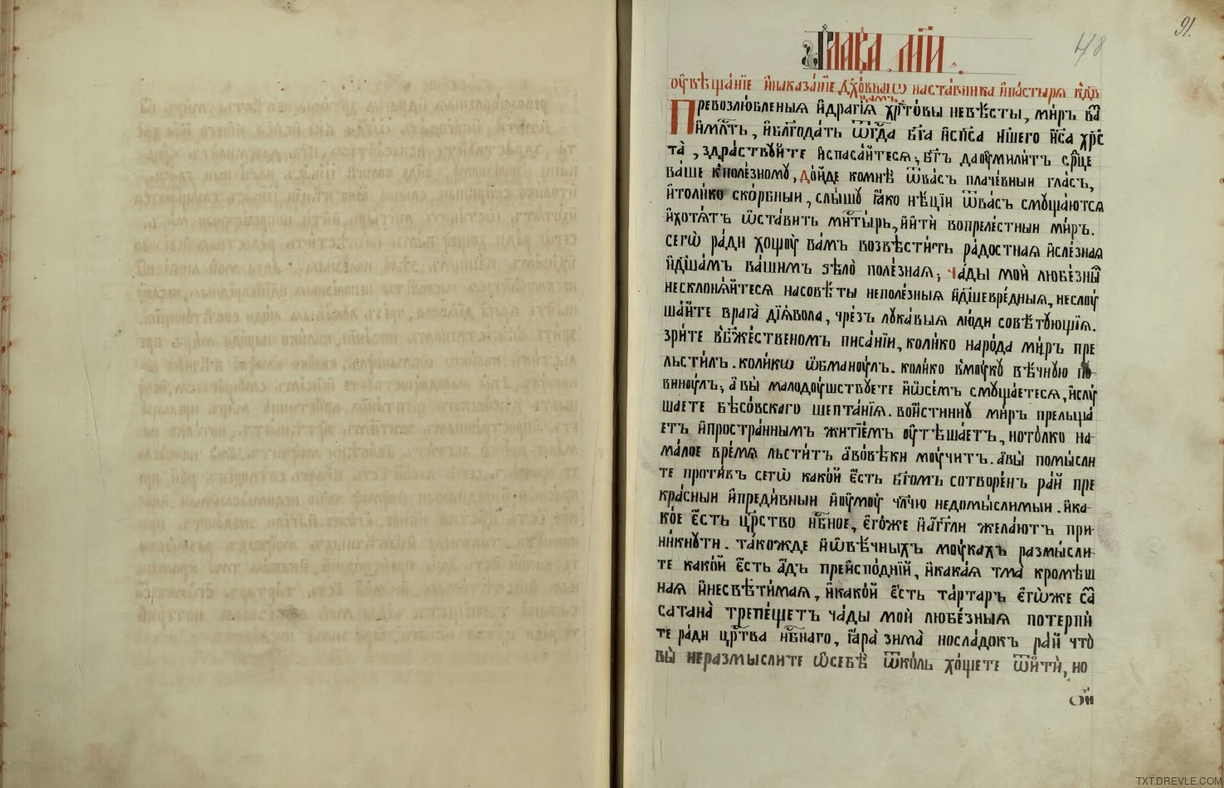 91.
48
Глава м҃и.
Ѹ҆вѣща́нїе и҆наказа́нїе дх҃о́внагѡ наставника и҆па́стырѧ къдв
камъ
Превозлю́бленыѧ и҆драгі́ѧ хрⷭ҇то́вы невѣ́сты, ми́ръ ва
и҆млⷭ҇ть, и҆блгⷣода́ть ѿгⷭ҇да бг҃а и҆сп҃са н҃шего і҆и҃са хрⷭ҇
та̀, здра́ствꙋйте и҆спаса́йтесѧ, бг҃ъ даѹ҆мили́тъ срⷣце
ва́ше кполе́зномꙋ, до́йде комнѣ̀ ѿва́съ плаче́вныи гла́съ,
и҆толи́ко ско́рбныи, слы́шꙋ ꙗ҆́ко нѣ́цїи ѿва́съ смꙋща́ютсѧ
и҆хотѧ́тъ ѡ҆ста́вить мн҃ты́рь, и҆итѝ вопреле́стныи ми́ръ.
сегѡ̀ ра́ди хощꙋ̀ ва́мъ возвѣсти́ть ра́достнаѧ и҆сле́знаѧ
и҆дш҃а́мъ ва́шимъ ѕѣлѡ̀ поле́знаѧ; ча́ды моѝ любе́знїи
несклонѧ́йтесѧ насовѣ́ты неполе́зныѧ и҆дш҃евре́дныѧ, неслꙋ
ша́йте врага̀ дїѧ́вола, чре́зъ лꙋка́выѧ лю́ди совѣ́тꙋющїѧ.
зри́те вбж҃е́ственомъ писа́нїи, коли́ко наро́да ми́ръ пре
льсти́лъ. коли́кѡ ѡ҆бманꙋ́лъ. коли́ко вмꙋ́кꙋ вѣ́чнꙋю по
винꙋ́лъ; а҆вы̀ малодꙋ́шствꙋете и҆ѡ҆се́мъ смꙋща́етесѧ, и҆слꙋ
шаете бѣсо́вскаго шепта́нїѧ. вои́стиннꙋ ми́ръ прельща
е́тъ и҆простра́ннымъ житїе́мъ ѹ҆тѣша́етъ, ното́лко на
ма́лое вре́мѧ льсти́тъ а҆во́вѣки мꙋ́читъ. а҆вы̀ помы́сли
те проти́въ сегѡ̀ како́й є҆́сть бг҃омъ сотворе́нъ ра́й пре
кра́сныи и҆преди́вныи и҆ѹ҆мꙋ̀ чл҃чю недомы́слимыи. и҆ка
ко́е є҆́сть црⷭ҇тво нбⷭ҇ное, є҆го́же и҆а҆́гг҃ли жела́ютъ при
ни́кнꙋти. та́кожде и҆ѡ҆вѣ́чныхъ мꙋ́кахъ размы́сли
те како́й є҆́сть а҆́дъ преиспо́днїй, и҆кака́ѧ тма̀ кромѣ́ш
наѧ и҆несвѣти́маѧ, и҆како́й є҆́сть та́ртаръ є҆гѡ́же са
сатана̀ трепе́щетъ ча́ды моѝ любе́зныѧ потерпи́
те ра́ди црⷭ҇тва нбⷭ҇наго, ꙗ҆ра̀ зима̀ носла́докъ ра́й что̀
вы̀ неразмы́слите ѡ҆себѣ̀ ѿко́ль хо́щете ѿитѝ, но
ѻ҆и
TXT.DREVLE.COM